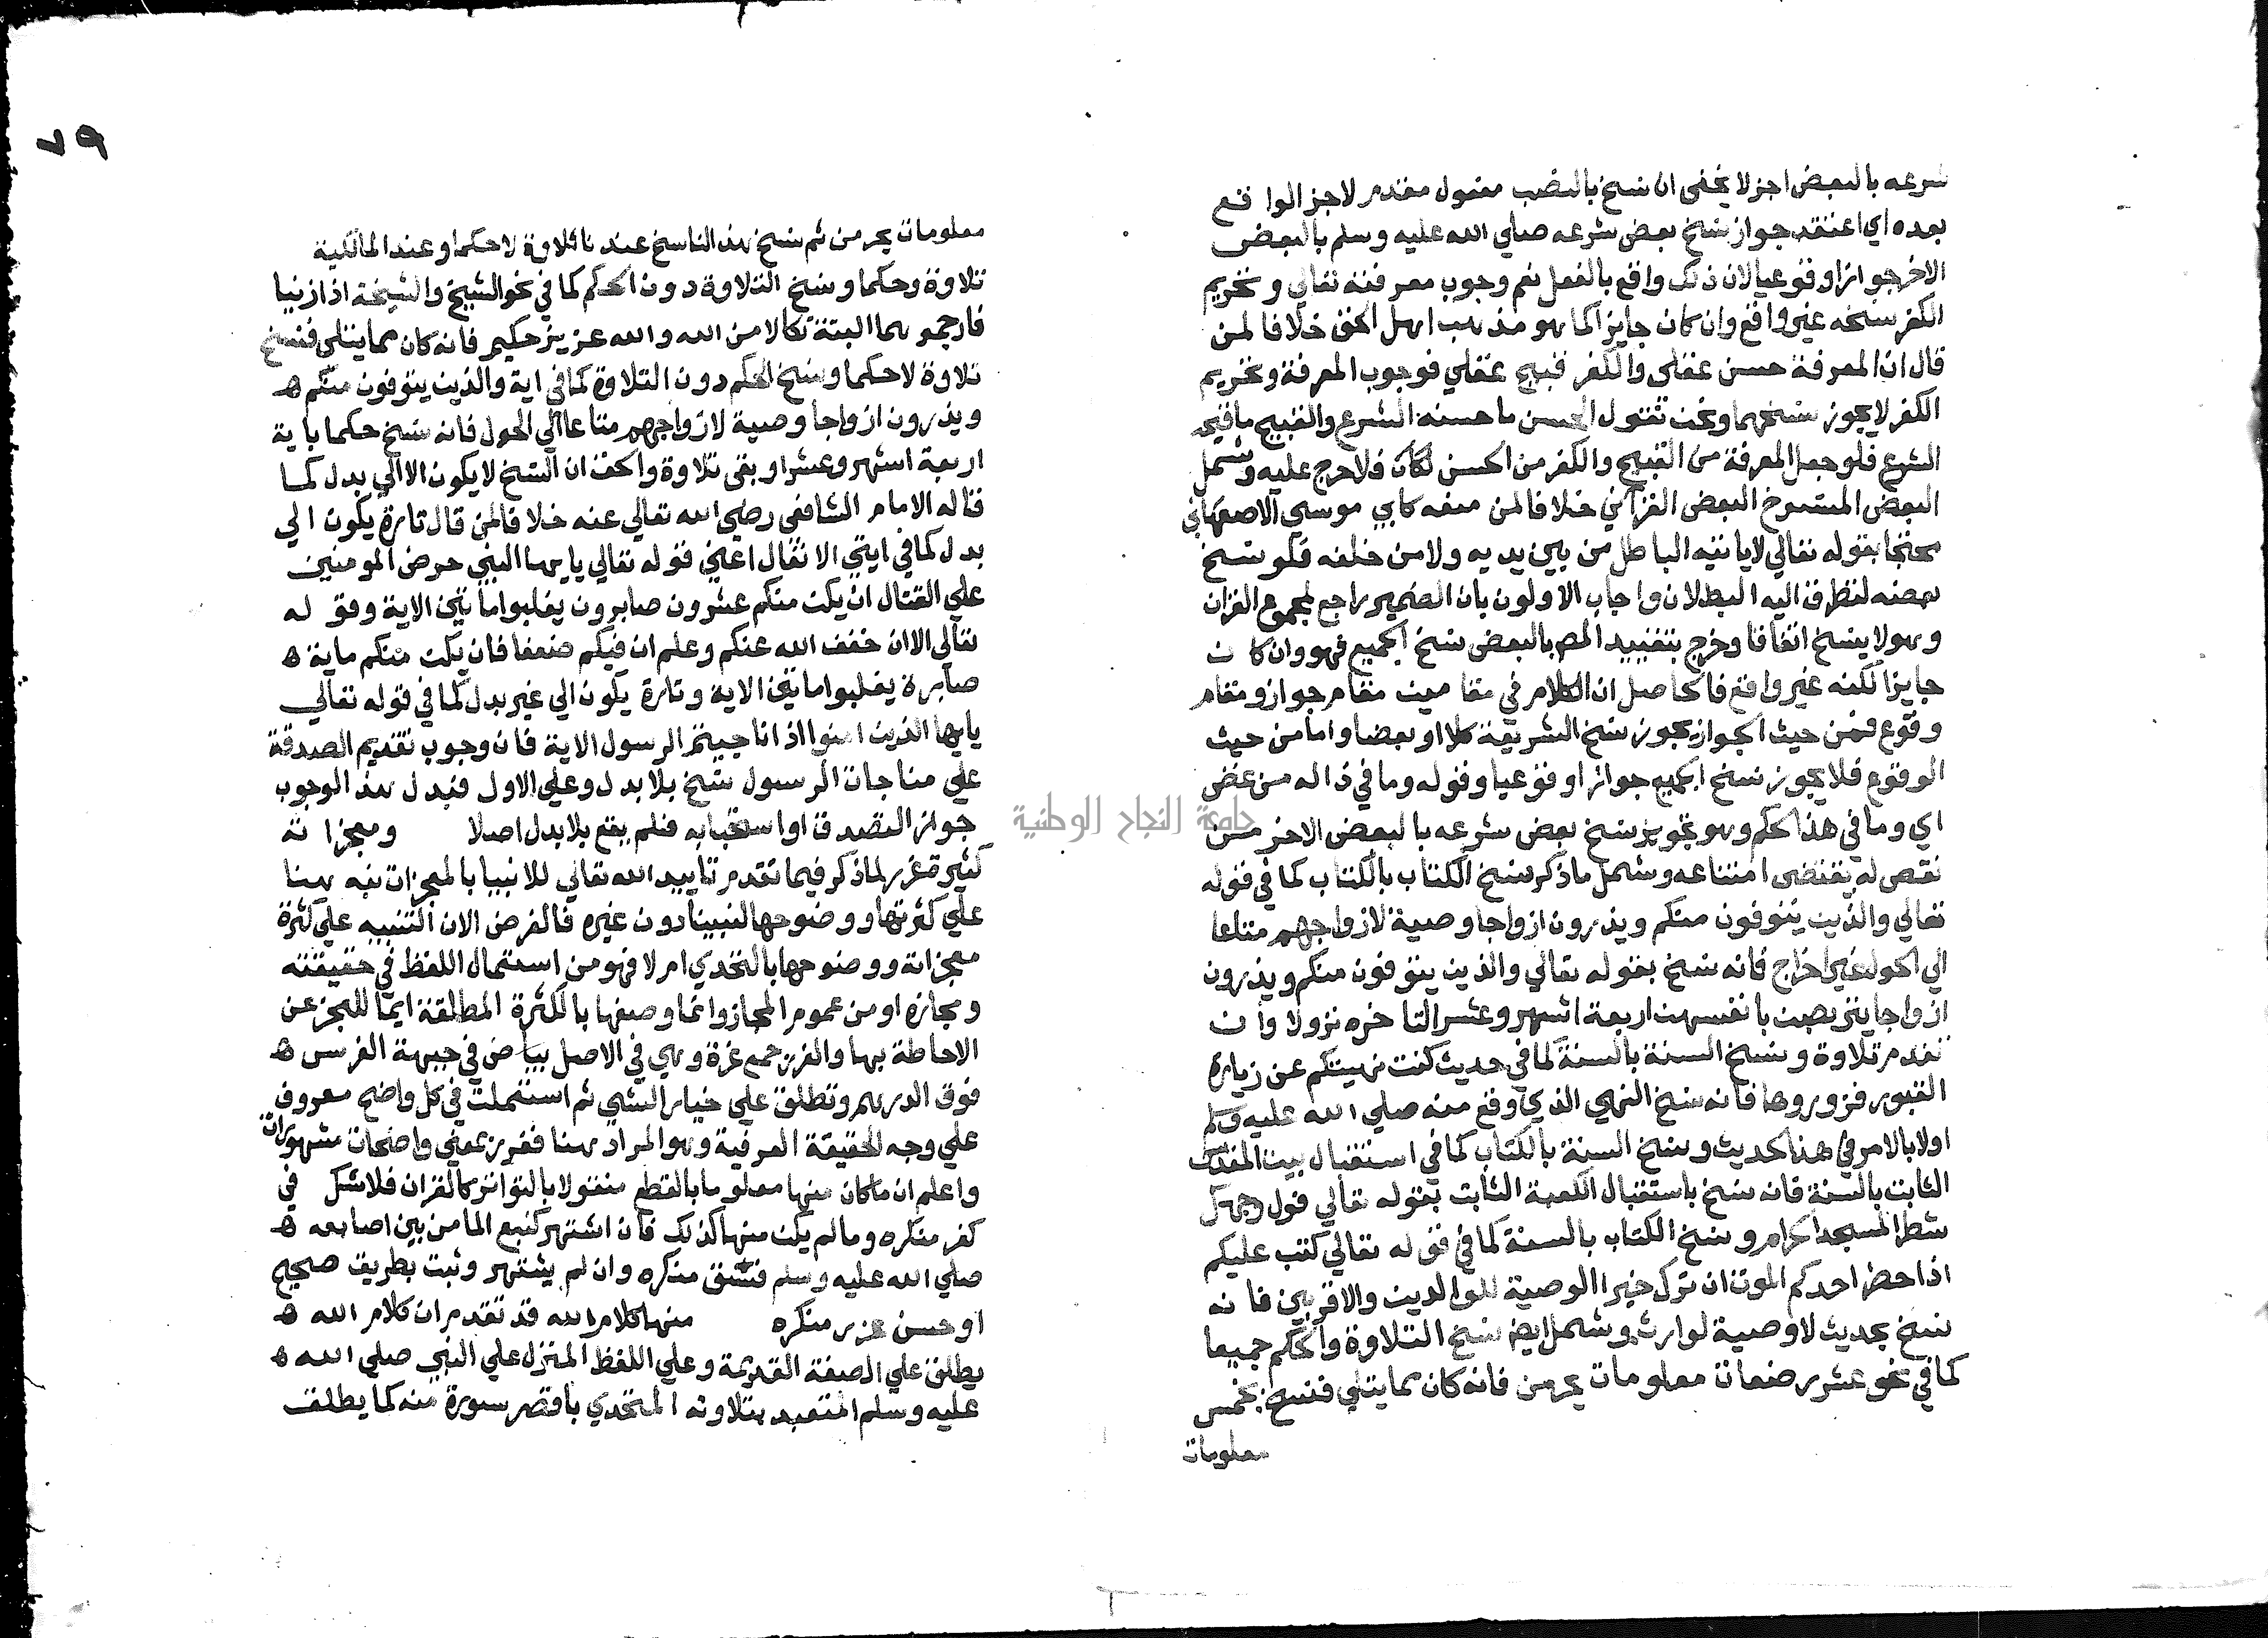 شرعه بالبعض اجز لا يخفى ان نسخ بالنصب مفعول مقدم لاجز الواقع
بعده اي اعتقد جواز نسخ بعض شرعه صلي الله عليه وسلم بالبعض
الاخر جوازا ووقوعيا لان ذلك واقع بالفعل نعم وجوب معرفته تعالي وتحريم
الكفر نسخه غير واقع وان كان جايزا كما هو مذهب اهل الحق خلافا لمن
قال ان المعرفة حسن عقلي والكفر قبيح عقلي فوجوب المعرفة وتحريم
الكفر لا يجوز نسخهما ونحن نقول الحسن ما حسنه الشرع والقبيح ما قبحه
الشرع فلو جعل المعرفة من القبيح والكفر من الحسن لكان فلا حرج عليه وشمل
البعض المنسوخ البعض القراني خلافا لمن منعه كابي موسي الاصفهاني
محتجا بقوله تعالي لا ياتيه الباطل من بين يديه ولا من خلفه فلو نسخ
بعضه لتطرق اليه البطلان واجاب الاولون بان الضمير راجع لمجموع القران
وهو لا ينسخ اتفاقا وخرج بتقييد المص بالبعض نسخ الجميع فهو وان كان
جايزا لكنه غير واقع فالحاصل ان الكلام في مقامين مقام جواز ومقام
وقوع فمن حيث الجواز يجوز نسخ الشريعة كلا او بعضا واما من حيث
الوقوع فلا يجوز نسخ الجميع جوازا وقوعيا وقوله وما في ذا له من غض
اي وما في هذا الحكم وهو تجويز نسخ بعض شرعه بالبعض الاخر من
نقص له يقتضى امتناعه وشمل ما ذكر نسخ الكتاب بالكتاب كما في قوله
تعالي والذين يتوفون منكم ويذرون ازواجا وصية لازواجهم متاعا
الي الحول غير اخراج فانه نسخ بقوله تعالي والذين يتوفون منكم ويذرون
ازواجا يتربصن بانفسهن اربعة اشهر وعشرا لتاخره نزولا وان
تقدم تلاوة ونسخ السنة بالسنة كما في حديث كنت نهيتكم عن زيارة
القبور فزوروها فانه نسخ النهي الذي وقع منه صلي الله عليه وسلم
اولا بالامر في هذا الحديث ونسخ السنة بالكتاب كما في استقبال بيت المقدس
الثابت بالسنة فانه نسخ باستقبال الكعبة الثابت بقوله تعالي فول وجهك
شطر المسجد الحرام ونسخ الكتاب بالسنة كما في قوله تعالي كتب عليكم
اذا حضر احدكم الموت ان ترك خيرا الوصية للوالدين والاقربين فانه
نسخ بحديث لا وصية لوارث وشمل ايض نسخ التلاوة والحكم جميعا
كما في نحو عشر رضعات معلومات يحرمن فانه كان مما يتلي فنسخ بخمس
معلومات
٧٩
معلومات يحرمن ثم نسخ هذا الناسخ عندنا تلاوة لا حكما وعند المالكية
تلاوة وحكما ونسخ التلاوة دون الحكم كما في نحو الشيخ والشيخة اذا زنيا
فارجموهما البتة نكالا من الله والله عزيز حكيم فانه كان مما يتلي فنسخ
تلاوة لا حكما ونسخ الحكم دون التلاوة كما في اية والذين يتوفون منكم ه
ويذرون ازواجا وصية لازواجهم متاعا الي الحول فانه نسخ حكما باية
اربعة اشهر وعشرا وبقى تلاوة والحق ان النسخ لا يكون الا الي بدل كما
قاله الامام الشافعي رضي الله تعالي عنه خلافا لمن قال تارة يكون الي
بدل كما في ايتي الانفال اعني قوله تعالي يا يها النبي حرض المومنين
علي القتال ان يكن منكم عشرون صابرون يغلبوا ماتين الاية وقوله
تعالي الان خفف الله عنكم وعلم ان فيكم ضعفا فان يكن منكم ماية ه
صابرة يغلبوا ماتين الاية وتارة يكون الي غير بدل كما في قوله تعالي
يايها الذين امنوا اذا ناجيتم الرسول الاية فان وجوب تقديم الصدقة
علي مناجات الرسول نسخ بلا بدل وعلي الاول فبدل هذا الوجوب
جواز التصدق او استحبابه فلم يقع بلا بدل اصلا ومعجزاته
كثيرة غرر لما ذكر فيما تقدم تاييد الله تعالي للانبيا بالمعجزات نبه هنا
علي كثرتها ووضوحها لنبينا دون غيره فالغرض الان التنبيه علي كثرة
معجزاته ووضوحها بالتحدي ام لا فهو من استعمال اللفظ في حقيقته
ومجازه او من عموم المجاز وانما وصفها بالكثرة المطلقة ايما للعجز عن
الاحاطة بها والغرر جمع غرة وهي في الاصل بياض في جبهة الفرس ه
فوق الدرهم وتطلق علي خيار الشي ثم استعملت في كل واضح معروف
علي وجه الحقيقة العرفية وهو المراد هنا فغرر بمعني واضحات مشهورات
واعلم ان ما كان منها معلوما بالقطع منقولا بالتواتر كالقران فلا شك في
كفر منكره وما لم يكن منها كذلك فان اشتهر كنبع الما من بين اصابعه ه
صلي الله عليه وسلم فسق منكره وان لم يشتهر وثبت بطريق صحيح
او حسن عزر منكره منها كلام الله قد تقدم ان كلام الله ه
يطلق علي الصفة القديمة وعلي اللفظ المنزل علي النبي صلي الله ه
عليه وسلم المتعبد بتلاوته المتحدي باقصر سورة منه كما يطلق
جامعة النجاح الوطنية